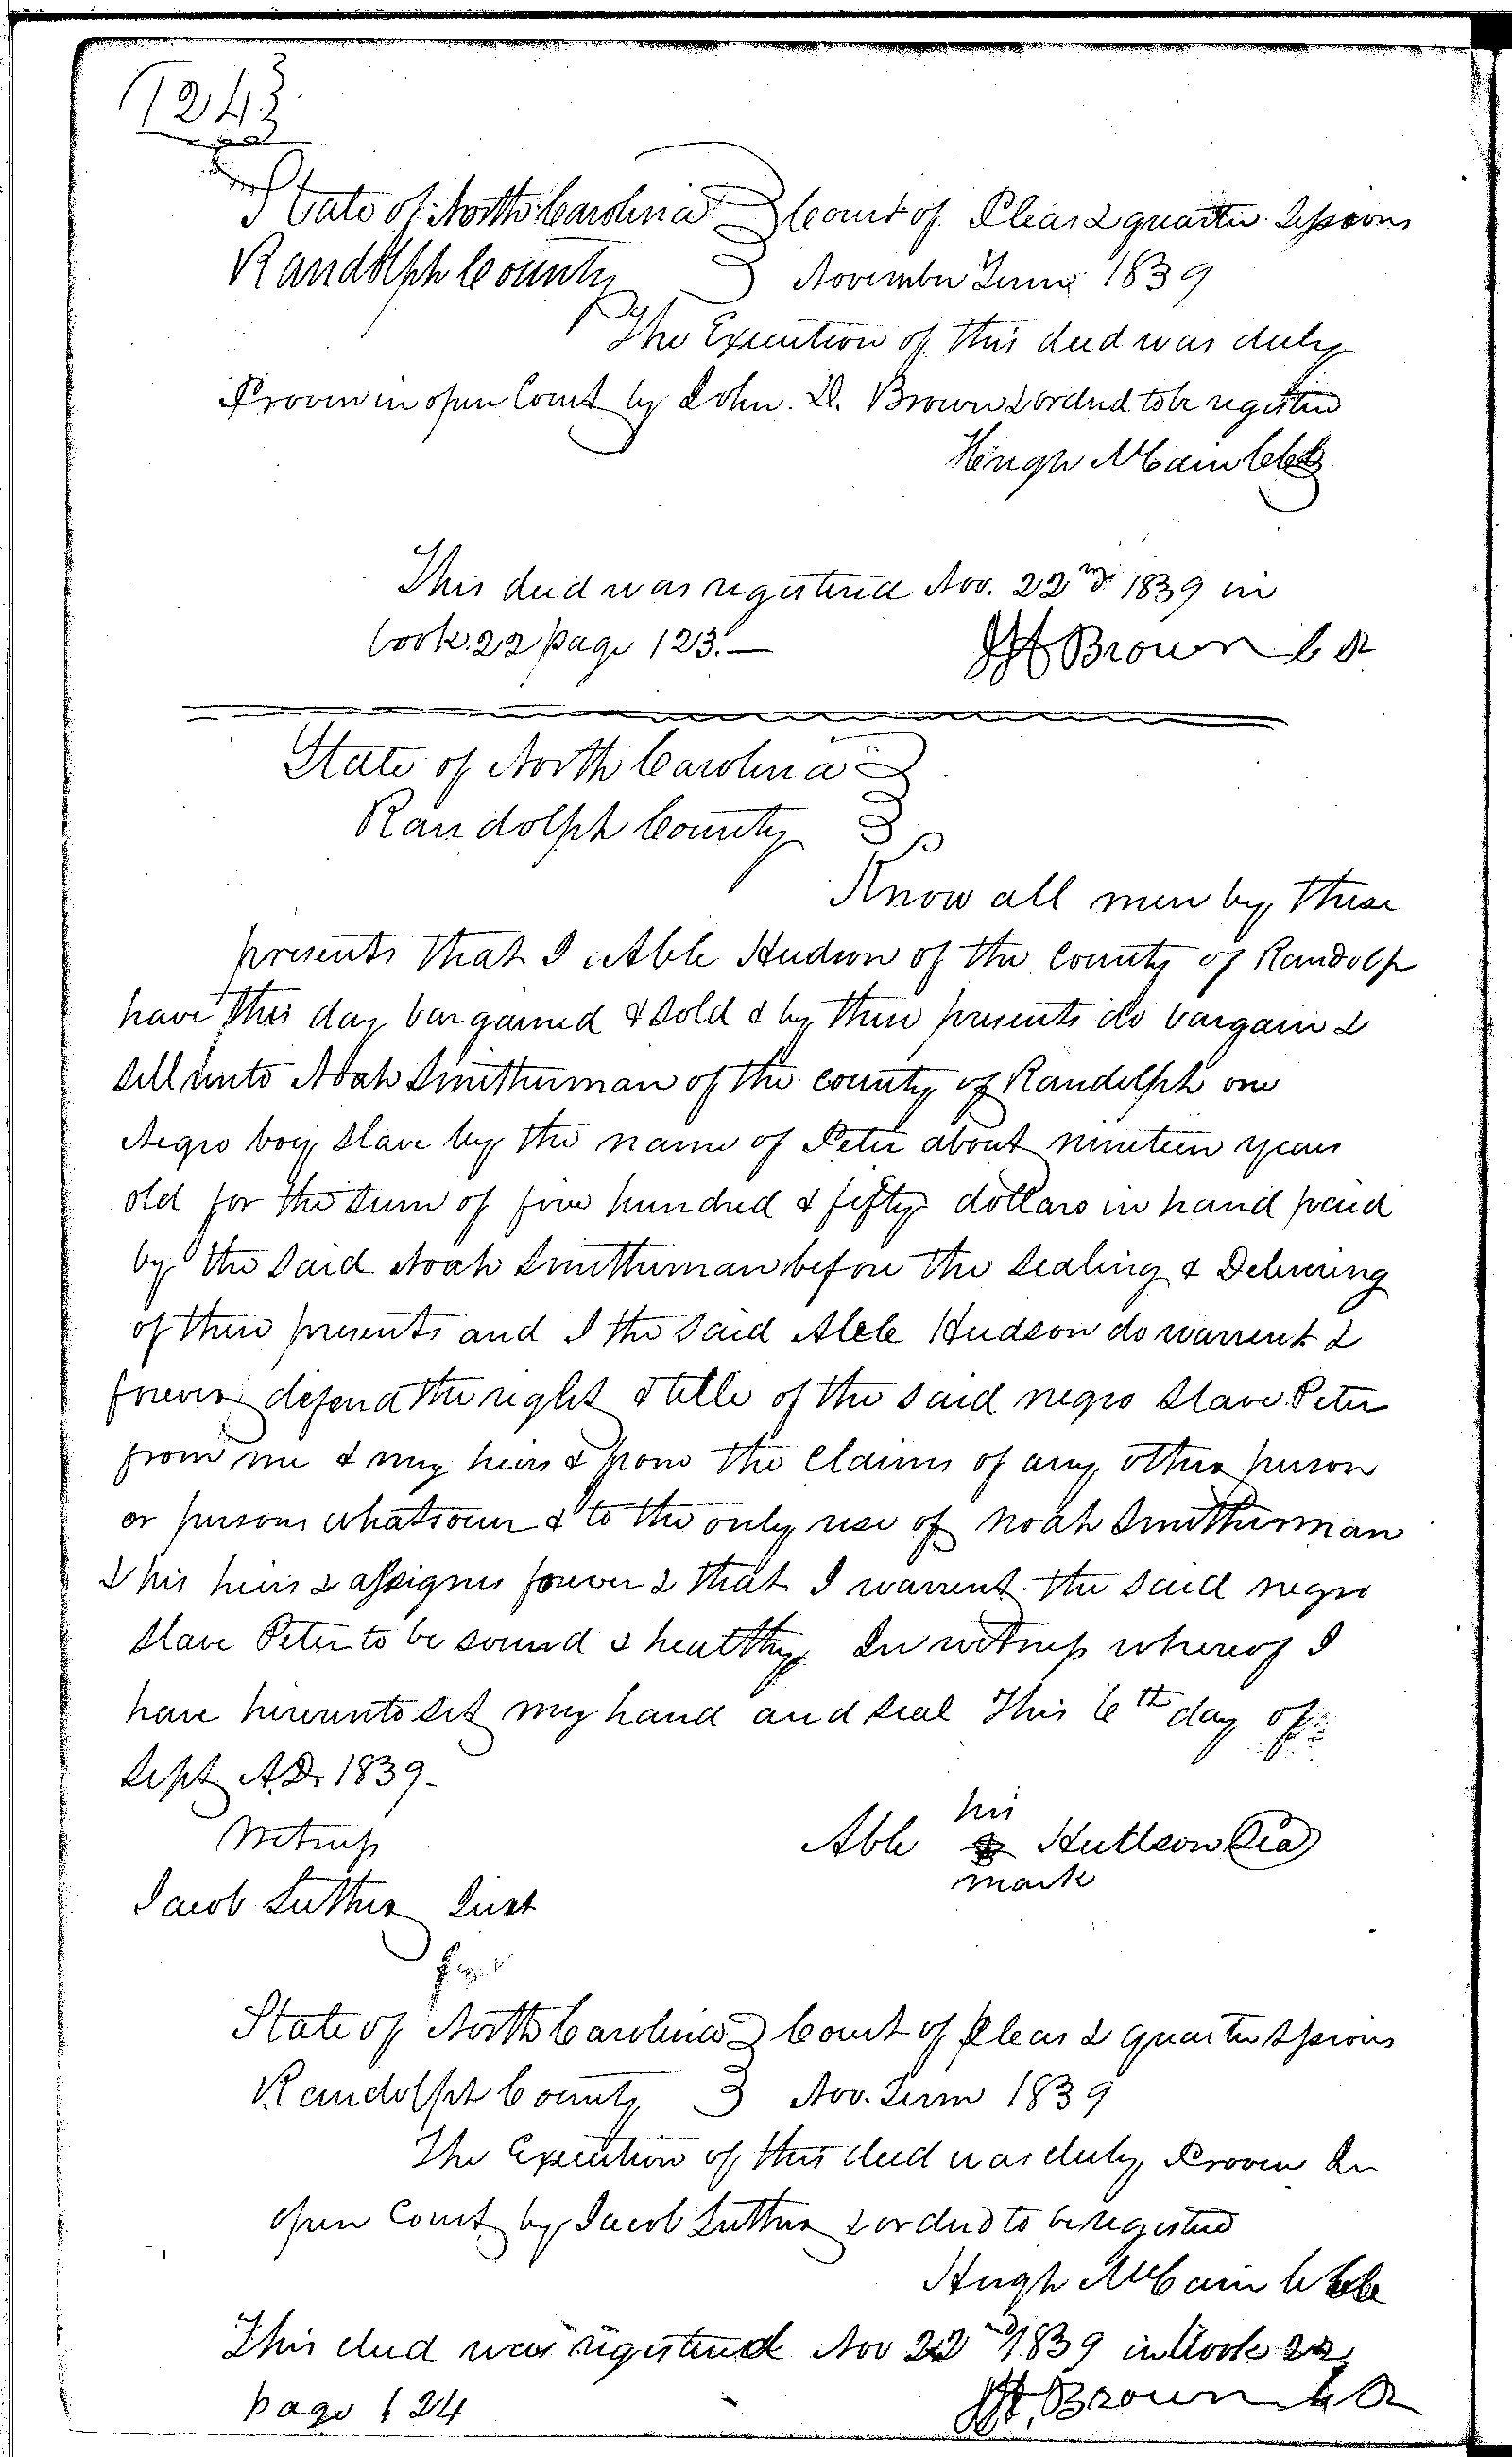 124
State of North Carolina } Court of Pleas & quarter Sessions
Randolph County } November Term 1839
The Execution of this deed was duly
Proven in open Court by John. D. Brown & ordred to be registerd
Hugh McCain Clk
This deed was registered Nov. 22nd 1839 in
book. 22 page 123. —
JH Brown C R
State of North Carolina }
Randolph County }
Know all men by these
presents that I Able Hudson of the county of Randolp
have this day bargained & sold & by these presents do bargain &
sell unto Noah Smitherman of the county of Randolph one
Negro boy slave by the name of Peter about nineteen years
old for the sum of five hundred & fifty dollars in hand paid
by the said Noah Smitherman before the sealing & Delivering
of these presents and I the said Able Hudson do warrent &
forever defend the right & title of the said negro slave Peter
from me & my heirs & from the claims of any other person
or persons whatsoever & to the only use of Noah Smitherman
& his heirs & assignes forever & that I warrent the said negro
slave Peter to be sound & healthy. In witness whereof I
have hereunto set my hand and seal this 6th day of
Sept A.D. 1839 -
Witness
his
Able Hudson Sea
mark
Jacob Luther Jurt
State of North Carolina } Court of Pleas & quarter Sessions
Randolph County } Nov. Term 1839
The Execution of this deed was duly Proven In
open Court by Jacob Luther & ordred to be registerd
Hugh McCain Clk
This deed was registered Nov 22nd 1839 in Book 22
page 124
JH. Brown C R